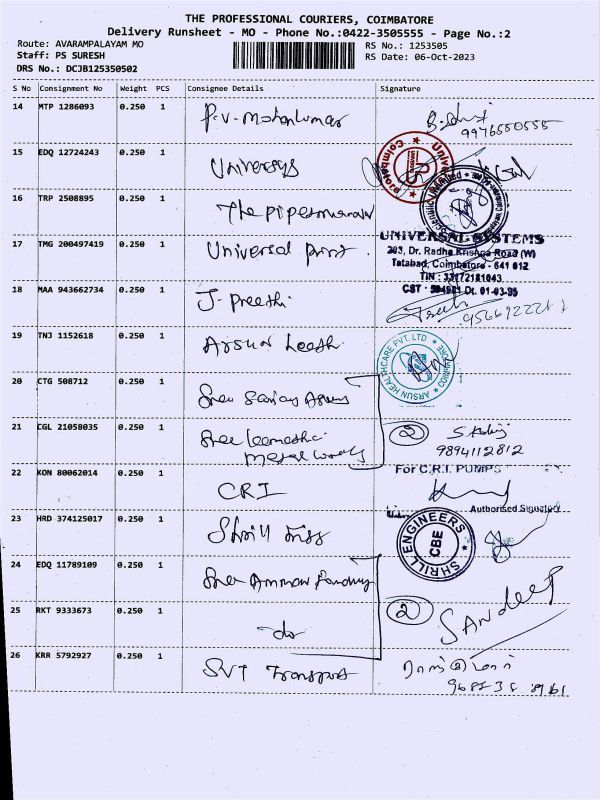 THE PROFESSIONAL COURIERS, COIMBATORE
Delivery Runsheet - MO - Phone No.:0422-3505555 - Page No.:2
Route: AVARAMPALAYAM MO
RS No.: 1253505
Staff: PS SURESH
RS Date: 06-Oct-2023
DRS No.: DCJB125350502
S No Consignment No Weight PCS Consignee Details Signature
14 MTP 1286093 0.250 1 P.V. Mohankumar
9976550555
15 EDQ 12724243 0.250 1 Universys
Coimbatore
16 TRP 2508895 0.250 1 The
17 TMG 200497419 0.250 1 Universal Print
UNIVERSAL SYSTEMS
293, Dr. Radha Krishna Road (W)
Tatabad, Coimbatore - 641 012
TIN : 33172181043
CST : Dt. 01-03-95
18 MAA 943662734 0.250 1 J. Preethi
19 TNJ 1152618 0.250 1 Arsun Heath
ARSUN HEALTHCARE PVT. LTD
20 CTG 508712 0.250 1 Sree
21 CGL 21058035 0.250 1 Sree
Metal Works
2
9894112812
22 KON 80062014 0.250 1 CRI
For C.R.I. PUMPS
Authorised Signatory
23 HRD 374125017 0.250 1 Shrill
SHRILL ENGINEERS
CBE
24 EDQ 11789109 0.250 1 Sree Amman
25 RKT 9333673 0.250 1 do
2
Sandeep
26 KRR 5792927 0.250 1 SVT Transport